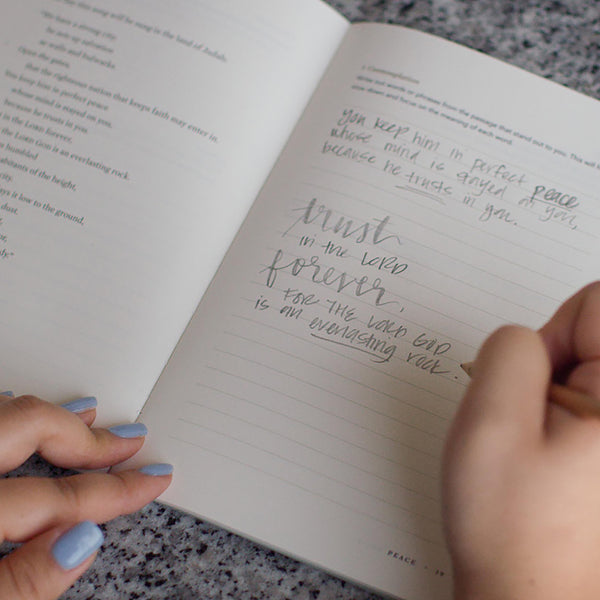 this song will be sung in the land of Judah.
"We have a strong city;
he sets up salvation
as walls and bulwarks.
Open the gates,
that the righteous nation that keeps faith may enter in.
You keep him in perfect peace
whose mind is stayed on you,
because he trusts in you.
in the LORD forever,
the LORD GOD is an everlasting rock.
humbled
abitants of the height,
city.
ays it low to the ground,
dust.
Contemplation
Write out words or phrases from the passage that stand out to you. This will
slow down and focus on the meaning of each word.
you keep him in perfect peace
whose mind is stayed on you,
because he trusts in you.
trust
in the LORD
forever,
FOR THE LORD GOD
is an everlasting rock.
PEACE • 19